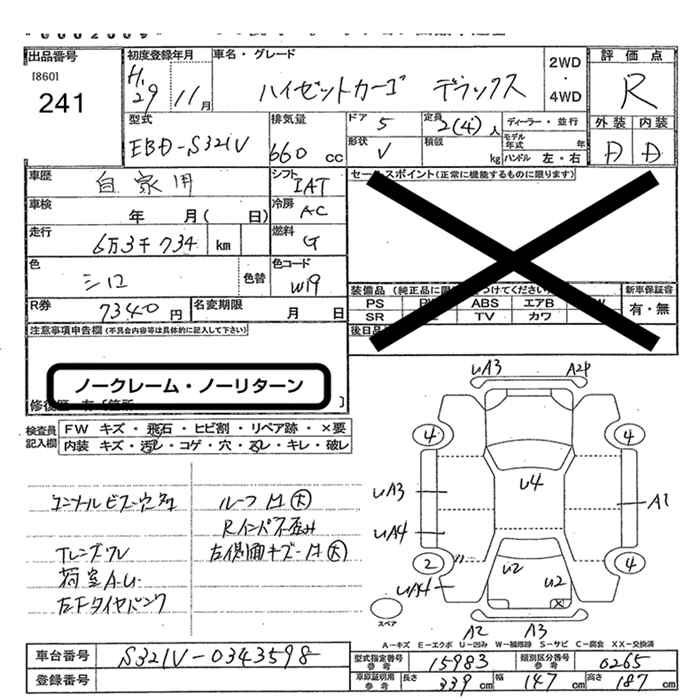 出品番号
[860]
241
初度登録年月
H.29 11月
車名・グレード
ハイゼットカーゴ デラックス
2WD・4WD
評価点
R
外装 内装
D D
型式
EBD-S321V
排気量
660 cc
ドア 5
形状 V
定員 2(4)人
積載 kg
ディーラー・並行
モデル年式 年
ハンドル 左・右
車歴
自家用
シフト
IAT
セールスポイント(正常に機能するものに限ります)
車検
年 月( 日)
冷房
AC
走行
6万3千734 km
燃料
G
色
シロ
色替
色コード
W19
装備品
PS ABS エアB
SR TV カワ
新車保証書
有・無
R券
7340円
名変期限
月 日
後日品
注意事項申告欄(不具合内容等は具体的に記入して下さい)
ノークレーム・ノーリターン
検査員記入欄
FW キズ・飛石・ヒビ割・リペア跡・×要
内装 キズ・汚レ・コゲ・穴・スレ・キレ・破レ
コーナールビスー穴多
ルーフ凹(大)
Rインパネ歪み
TLレンズワレ
左側面キズー凹(大)
荷室A.U.
左Fタイヤパンク
UA3 A2P
4 4
U4
UA3 A1
UA4
2 4
U2 U2
UA4
スペア
A2 A3
A-キズ E-エクボ U-凹み W-補修跡 S-サビ C-腐食 XX-交換済
車台番号
S321V-0343598
登録番号
型式指定番号 参考
15983
類別区分番号 参考
0265
車庫証明用 参考
長さ 339 cm
幅 147 cm
高さ 187 cm